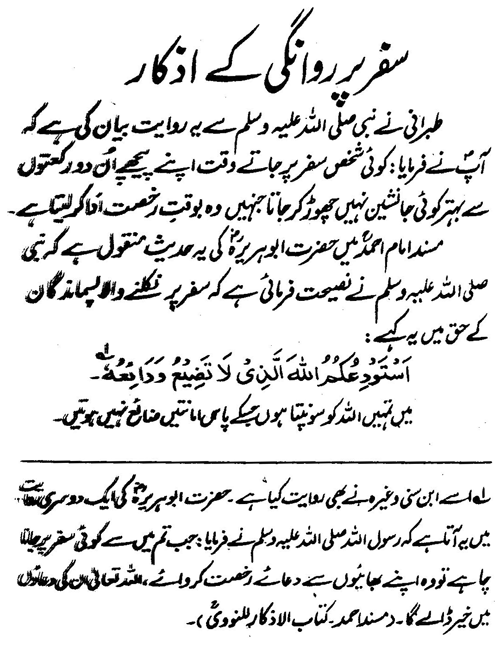 سفر پر روانگی کے اذکار
طبرانی نے نبی صلی اللہ علیہ وسلم سے یہ روایت بیان کی ہے کہ
آپؐ نے فرمایا: کوئی شخص سفر پر جاتے وقت اپنے پیچھے اُن دو رکعتوں
سے بہتر کوئی جانشین نہیں چھوڑ کر جاتا جنہیں وہ بوقتِ رخصت ادا کر لیتا ہے۔
مسند امام احمدؒ میں حضرت ابوہریرہؓ کی یہ حدیث منقول ہے کہ نبی
صلی اللہ علیہ وسلم نے نصیحت فرمائی ہے کہ سفر پر نکلنے والا پسماندگان
کے حق میں یہ کہے:
اَسْتَوْدِعُکُمُ اللہَ الَّذِیْ لَا تَضِیْعُ وَدَائِعُہٗ۔ لہ
میں تمہیں اللہ کو سونپتا ہوں جسکے پاس امانتیں ضائع نہیں ہوتیں۔
لہ اسے ابن سنی وغیرہ نے بھی روایت کیا ہے۔ حضرت ابوہریرہؓ کی ایک دوسری روایت
میں یہ آتا ہے کہ رسول اللہ صلی اللہ علیہ وسلم نے فرمایا: جب تم میں سے کوئی سفر پر جانا
چاہے تو وہ اپنے بھائیوں سے دعائے رخصت کروائے، اللہ تعالیٰ ان کی دعاؤں
میں خیر ڈالے گا۔ (مسند احمد۔ کتاب الاذکار للنوویؒ)۔